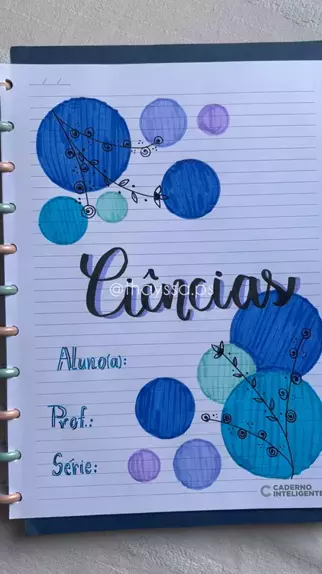 Ciências
@thayssa.ps
Aluno(a):
Prof.:
Série:
CADERNO
INTELIGENTE